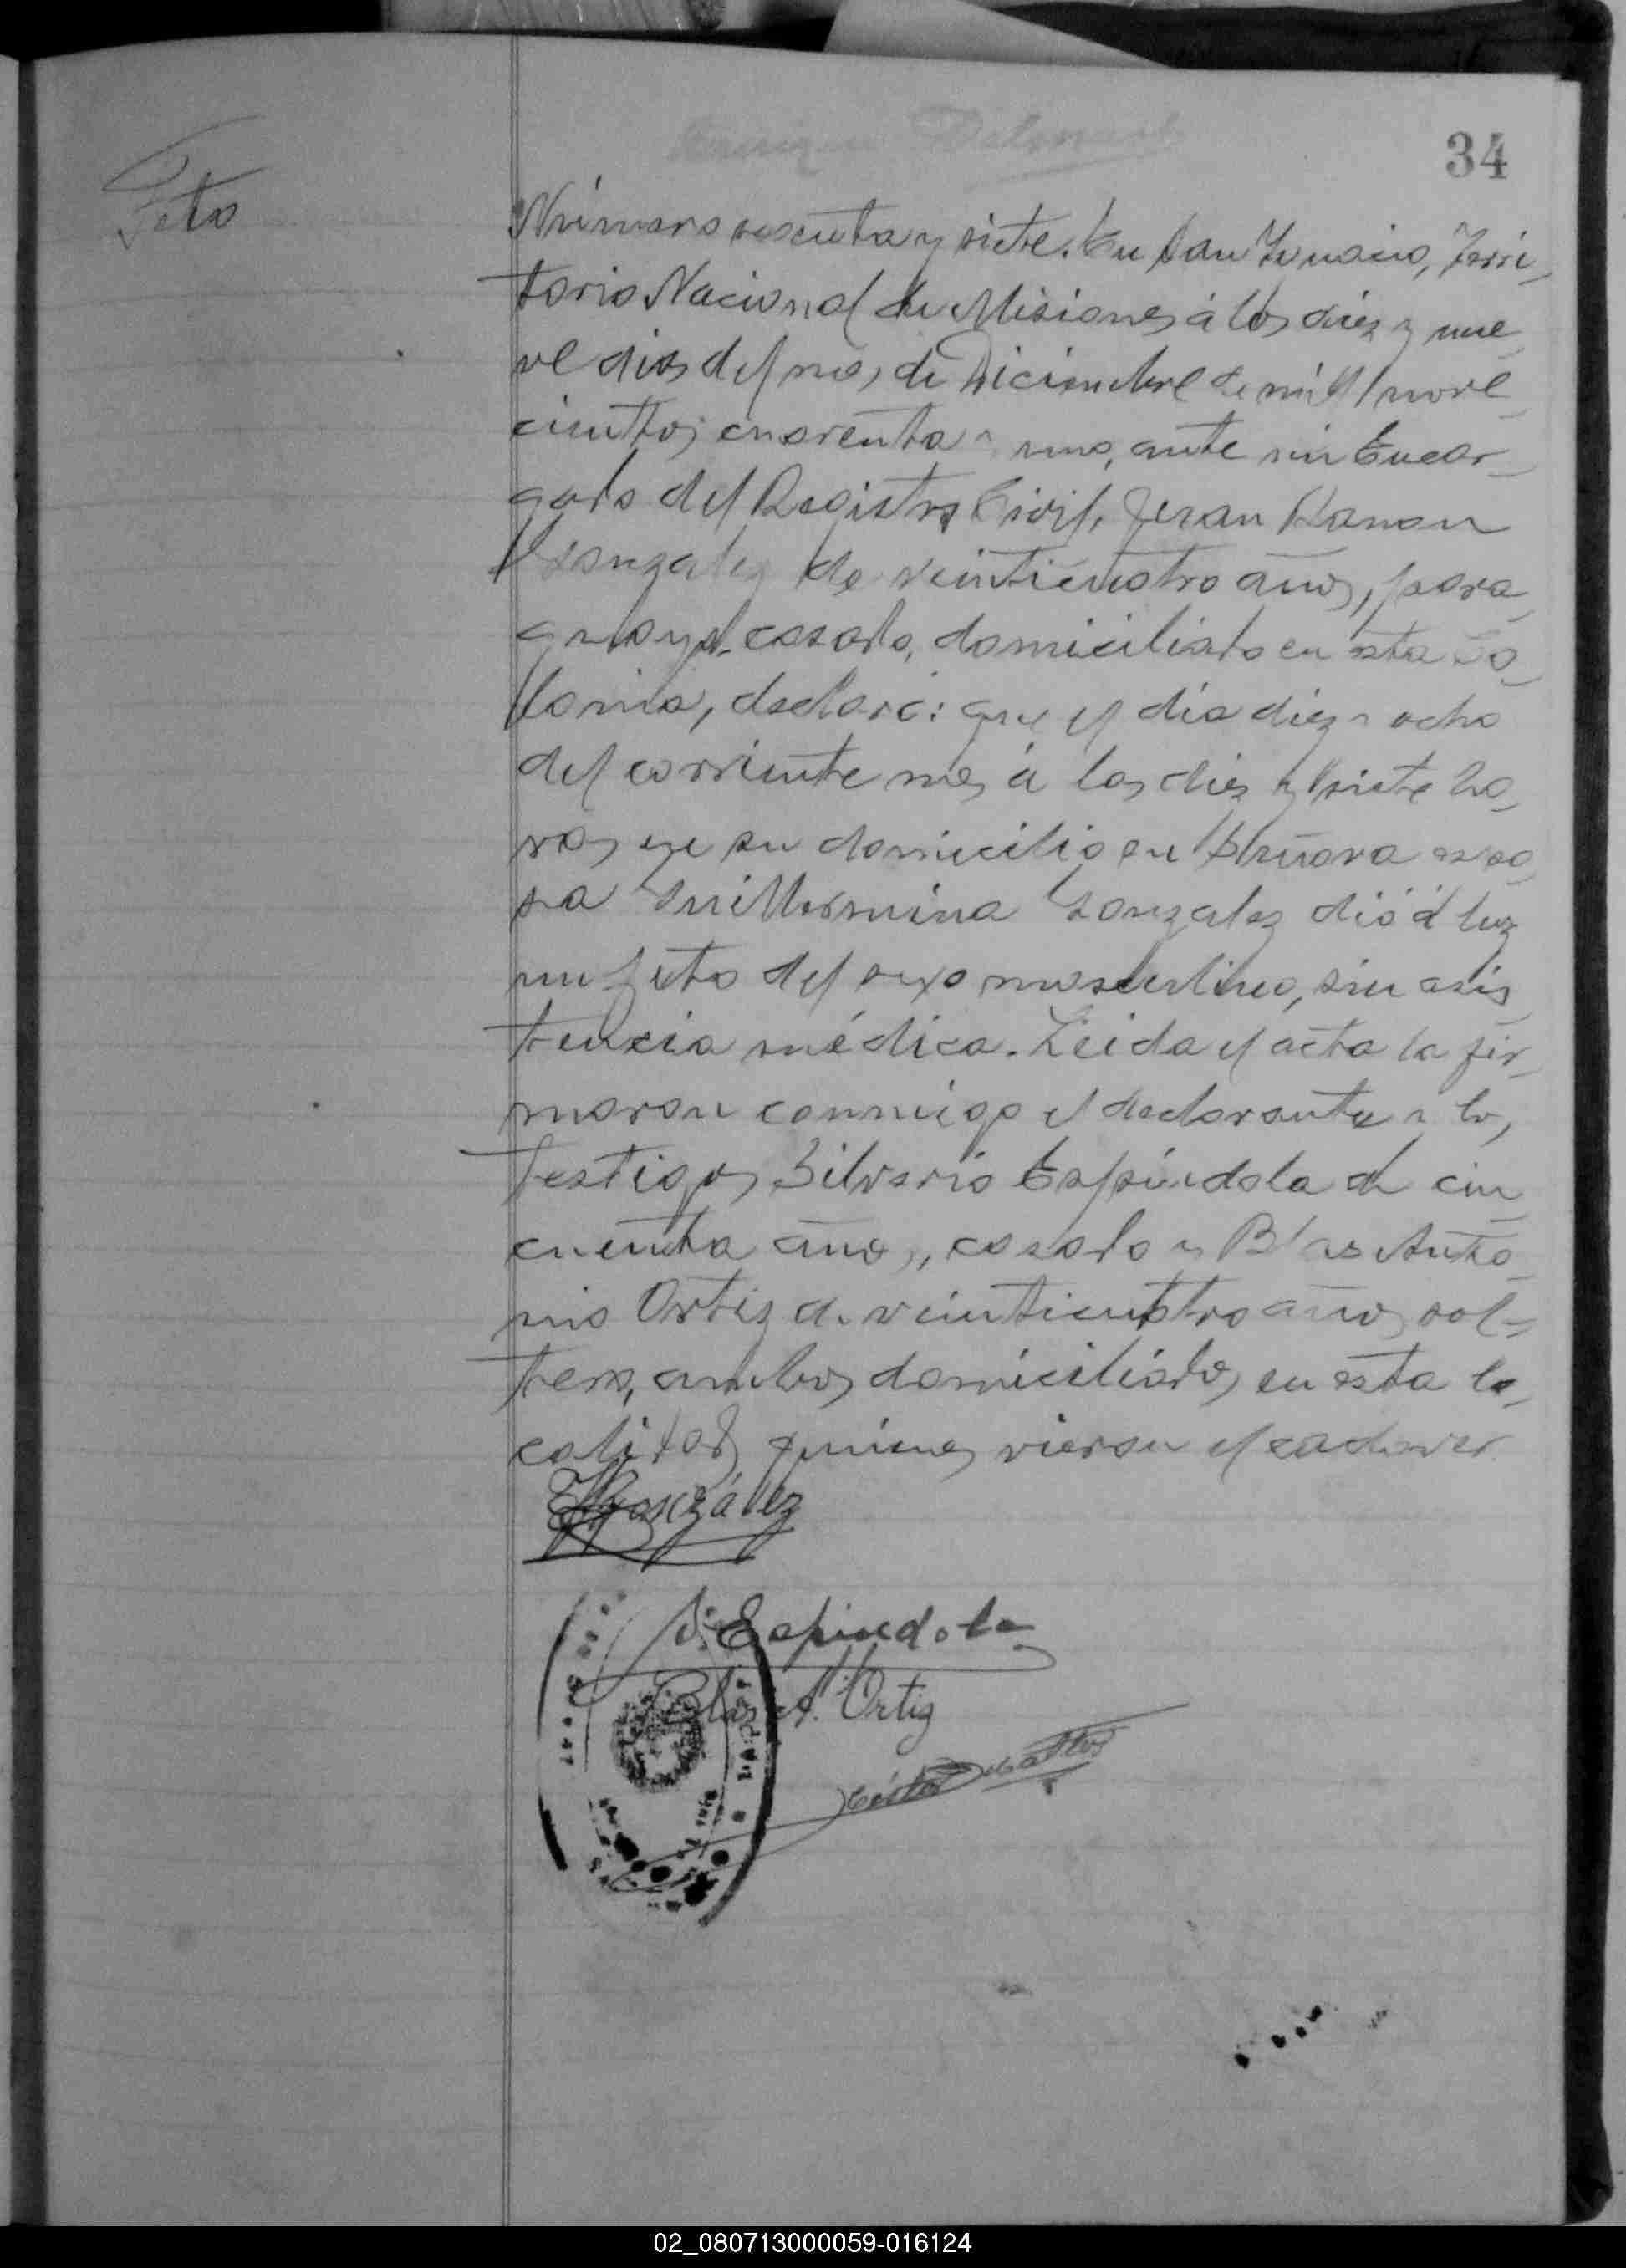 34
Feto
Número sesenta y siete. En San Ygnacio, Terri-
torio Nacional de Misiones á los diez y nue-
ve dias del mes de Diciembre de mil nove-
cientos cuarenta y uno, ante mi Encar-
gado del Registro Civil, Juan Ramon
Gonzalez de veinticuatro años, para-
guayo, casado, domiciliado en esta Co-
lonia, declaró: que el día diez y ocho
del corriente mes á las diez y siete ho-
ras en su domicilio su señora espo-
sa Guillermina Gonzalez dió á luz
un feto del sexo masculino, sin asis-
tencia médica. Leida el acta la fir-
maron conmigo el declarante y los
testigos Silverio Espíndola de cin-
cuenta años, casado y Blas Anto-
nio Ortiz de veinticuatro años sol-
tero, ambos domiciliados en esta lo-
calidad quienes vieron el cadaver
González
S. Espindola
Blas A. Ortiz
02_080713000059-016124